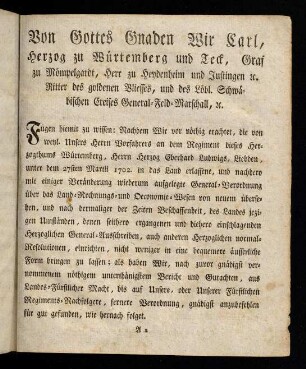 Von Gottes Gnaden Wir Carl,
Herzog zu Würtemberg und Teck, Graf
zu Mömpelgardt, Herr zu Heydenheim und Justingen ꝛc.
Ritter des goldenen Vliesses, und des Löbl. Schwä-
bischen Creises General-Feld-Marschall, ꝛc.
Fügen hiemit zu wissen: Nachdem Wir vor nöthig erachtet, die von
weyl. Unsers Herrn Vorfahrers an dem Regiment dieses Her-
zogthums Würtemberg, Herrn Herzog Eberhard Ludwigs, Liebden,
unter dem 27sten Martii 1702. in das Land erlassene, und nachhero
mit einiger Veränderung wiederum aufgelegte General-Verordnung
über das Land-Rechnungs- und Oeconomie-Wesen von neuem übersehen,
und nach dermaliger der Zeiten Beschaffenheit, des Landes jezi-
gen Umständen, denen seithero ergangenen und hiehero einschlagenden
Herzoglichen General-Ausschreiben, auch anderen Herzoglichen normal-
Resolutionen, einrichten, nicht weniger in eine bequemere äusserliche
Form bringen zu lassen: als haben Wir, nach zuvor gnädigst vernom-
menenem nöthigem unterthänigstem Bericht und Gutachten, aus
Landes-Fürstlicher Macht, bis auf Unsere, oder Unserer Fürstlichen
Regiments-Nachfolgere, fernere Verordnung, gnädigst anzubefehlen
für gut gefunden, wie hernach folget.
A 2